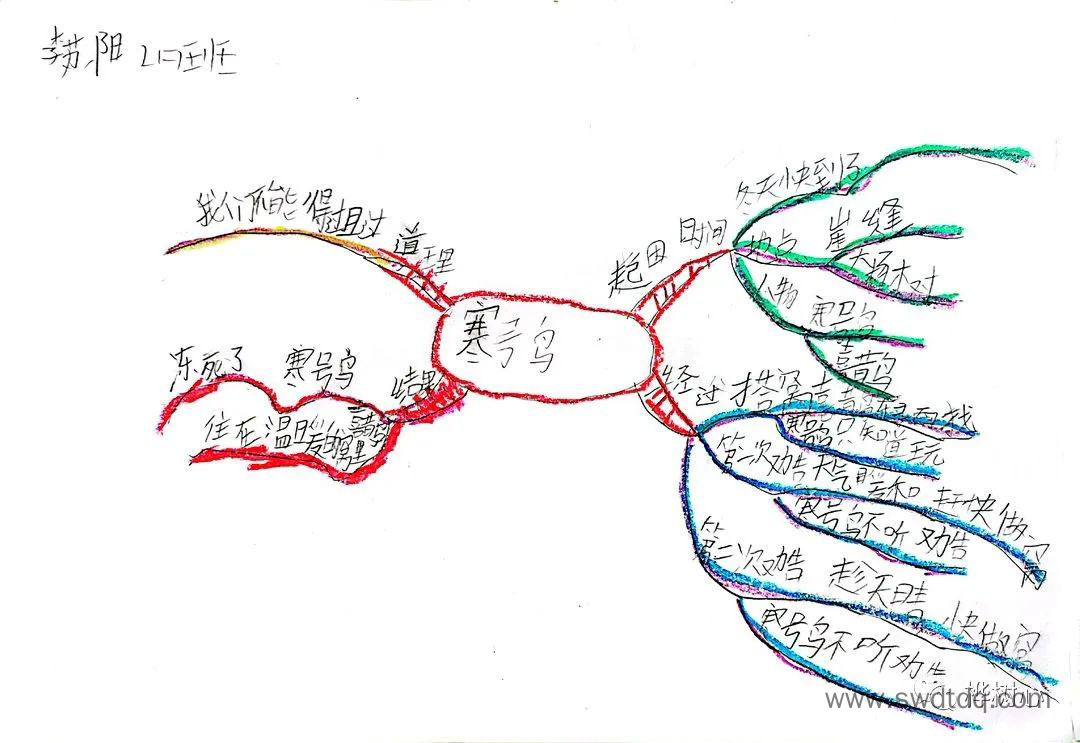 李苏阳
我们不能得过且过
道理
寒号鸟
冻死了
寒号鸟
结果
住在温暖的窝里
喜鹊
起因
时间
冬天快到了
地点
崖缝
大杨树
人物
寒号鸟
喜鹊
经过
搭窝
喜鹊
寒号鸟只知道玩
第一次劝告
天气暖和
赶快做窝
寒号鸟不听劝告
第二次劝告
趁天晴
快做窝
寒号鸟不听劝告
www.swdtdq.com